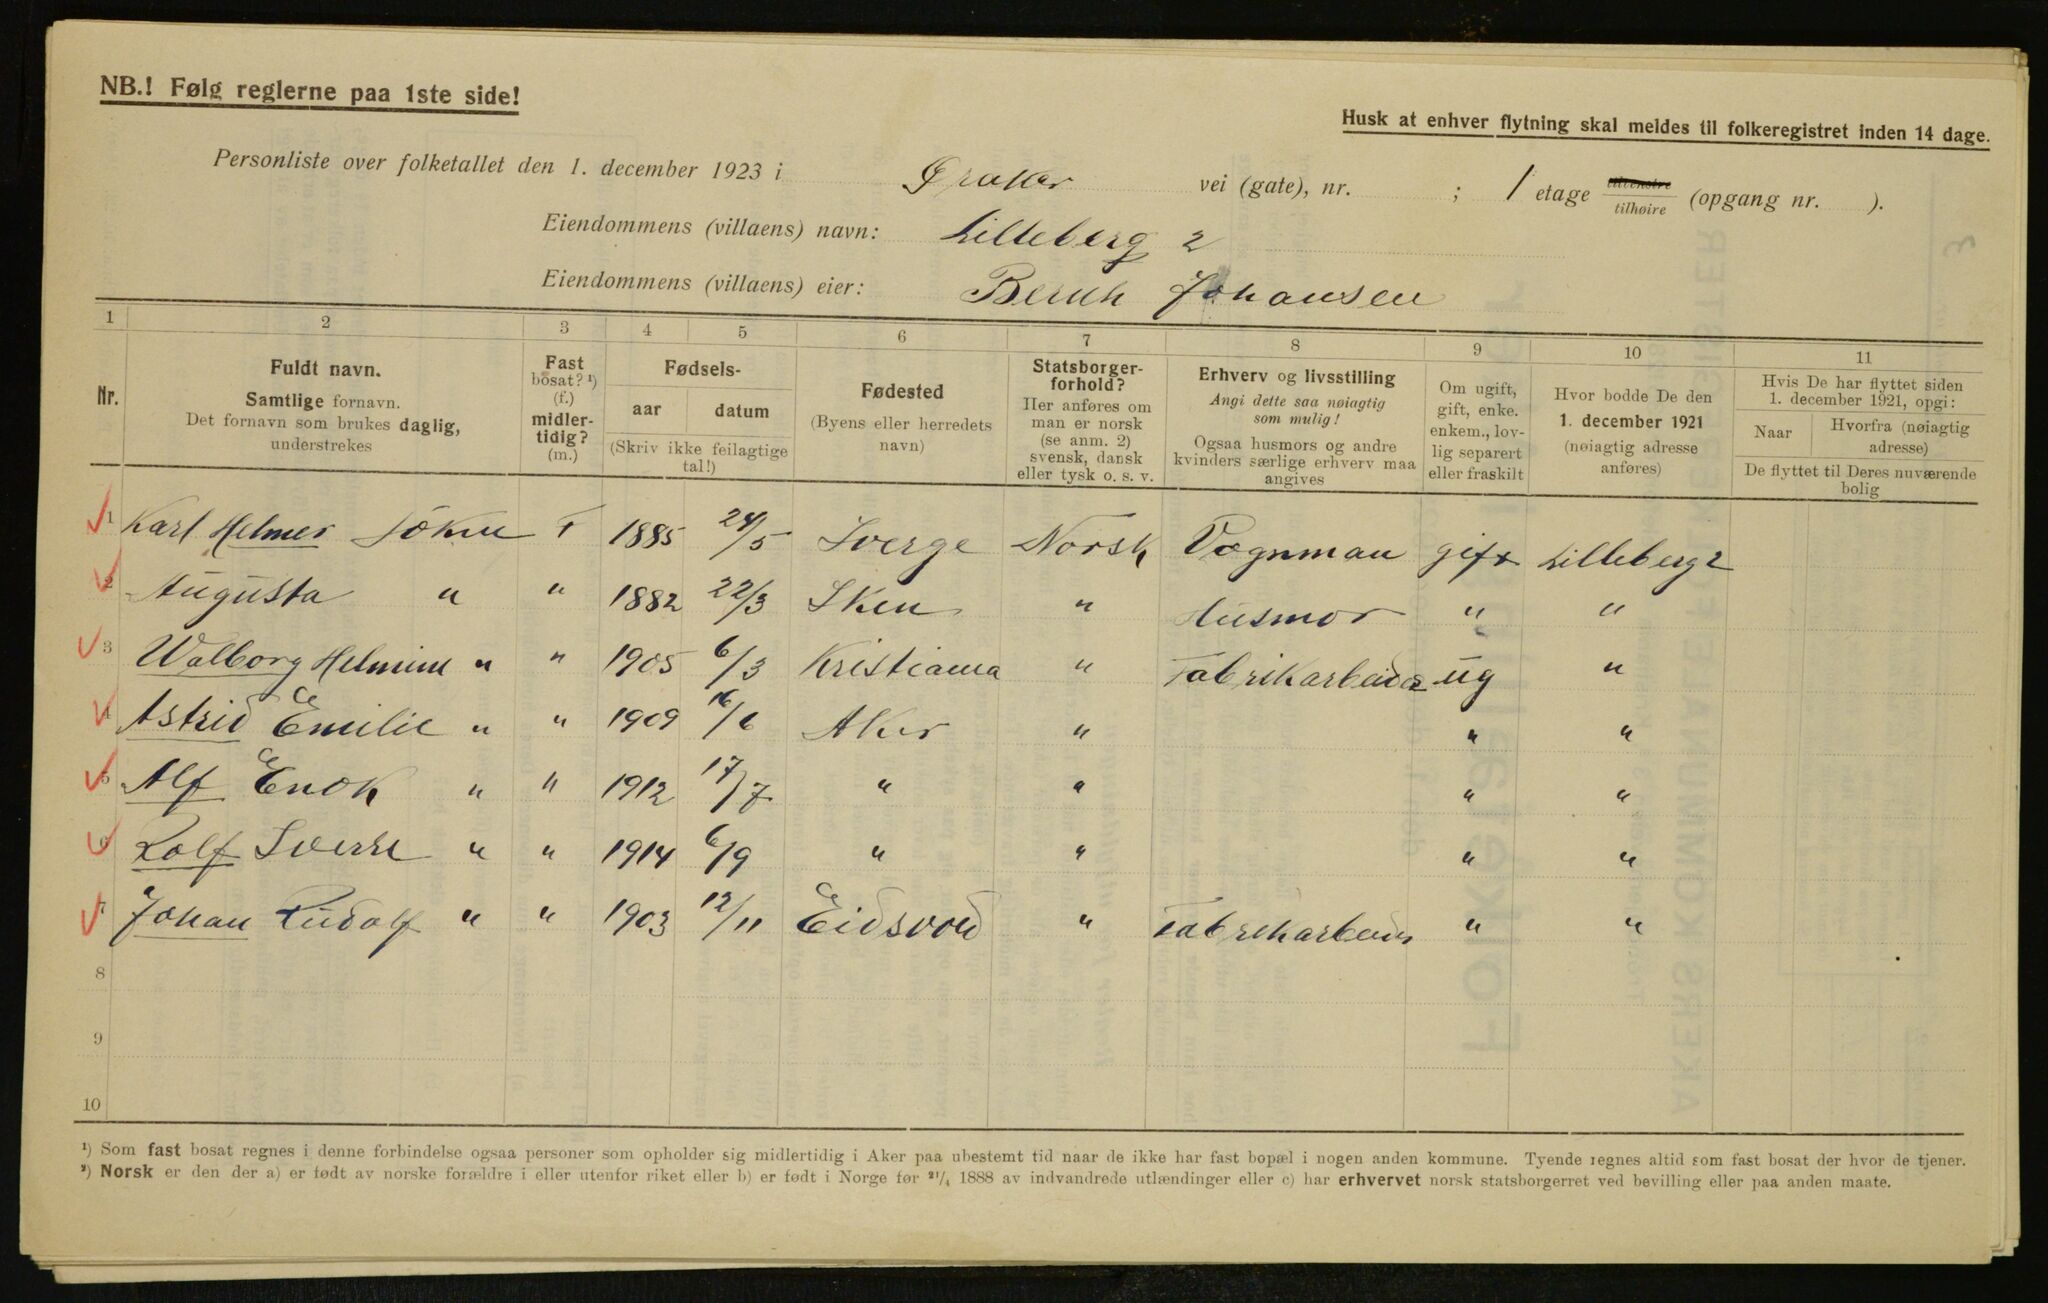 NB.! Følg reglerne paa 1ste side!
Husk at enhver flytning skal meldes til folkeregistret inden 14 dage.
Personliste over folketallet den 1. december 1923 i vei (gate), nr. ; 1 etage tilvenstre tilhøire (opgang nr. ).
Eiendommens (villaens) navn: Lilleberg 2
Eiendommens (villaens) eier: Johansen
1 2 3 4 5 6 7 8 9 10 11
Nr.
Fuldt navn.
Samtlige fornavn.
Det fornavn som brukes daglig,
understrekes
Fast
bosat? ¹)
(f.)
midler-
tidig?
(m.)
Fødsels-
aar datum
(Skriv ikke feilagtige
tal!)
Fødested
(Byens eller herredets
navn)
Statsborger-
forhold?
Her anføres om
man er norsk
(se anm. 2)
svensk, dansk
eller tysk o. s. v.
Erhverv og livsstilling
Angi dette saa nøiagtig
som mulig!
Ogsaa husmors og andre
kvinders særlige erhverv maa
angives
Om ugift,
gift, enke.
enkem., lov-
lig separert
eller fraskilt
Hvor bodde De den
1. december 1921
(nøiagtig adresse
anføres)
Hvis De har flyttet siden
1. december 1921, opgi:
Naar
Hvorfra (nøiagtig
adresse)
De flyttet til Deres nuværende
bolig
1 Karl Helmer F 1885 24/5 Sverge Norsk Vognman gift Lilleberg 2
2 Augusta " " 1882 22/3 Sken " Husmor " "
3 Walborg Helmine " " 1905 6/3 Kristiania " Fabrikarbeider ug "
4 Astrid Emilie " " 1909 16/6 Aker " " "
5 Alf Enok " " 1912 17/7 " " " "
6 Rolf Sverre " " 1914 6/9 " " " "
7 Johan Rudolf " " 1903 12/11 Eidsvold " Fabrikarbeider " "
8
9
10
¹) Som fast bosat regnes i denne forbindelse ogsaa personer som opholder sig midlertidig i Aker paa ubestemt tid naar de ikke har fast bopæl i nogen anden kommune. Tyende regnes altid som fast bosat der hvor de tjener.
²) Norsk er den der a) er født av norske forældre i eller utenfor riket eller b) er født i Norge før 21/4 1888 av indvandrede utlændinger eller c) har erhvervet norsk statsborgerret ved bevilling eller paa anden maate.